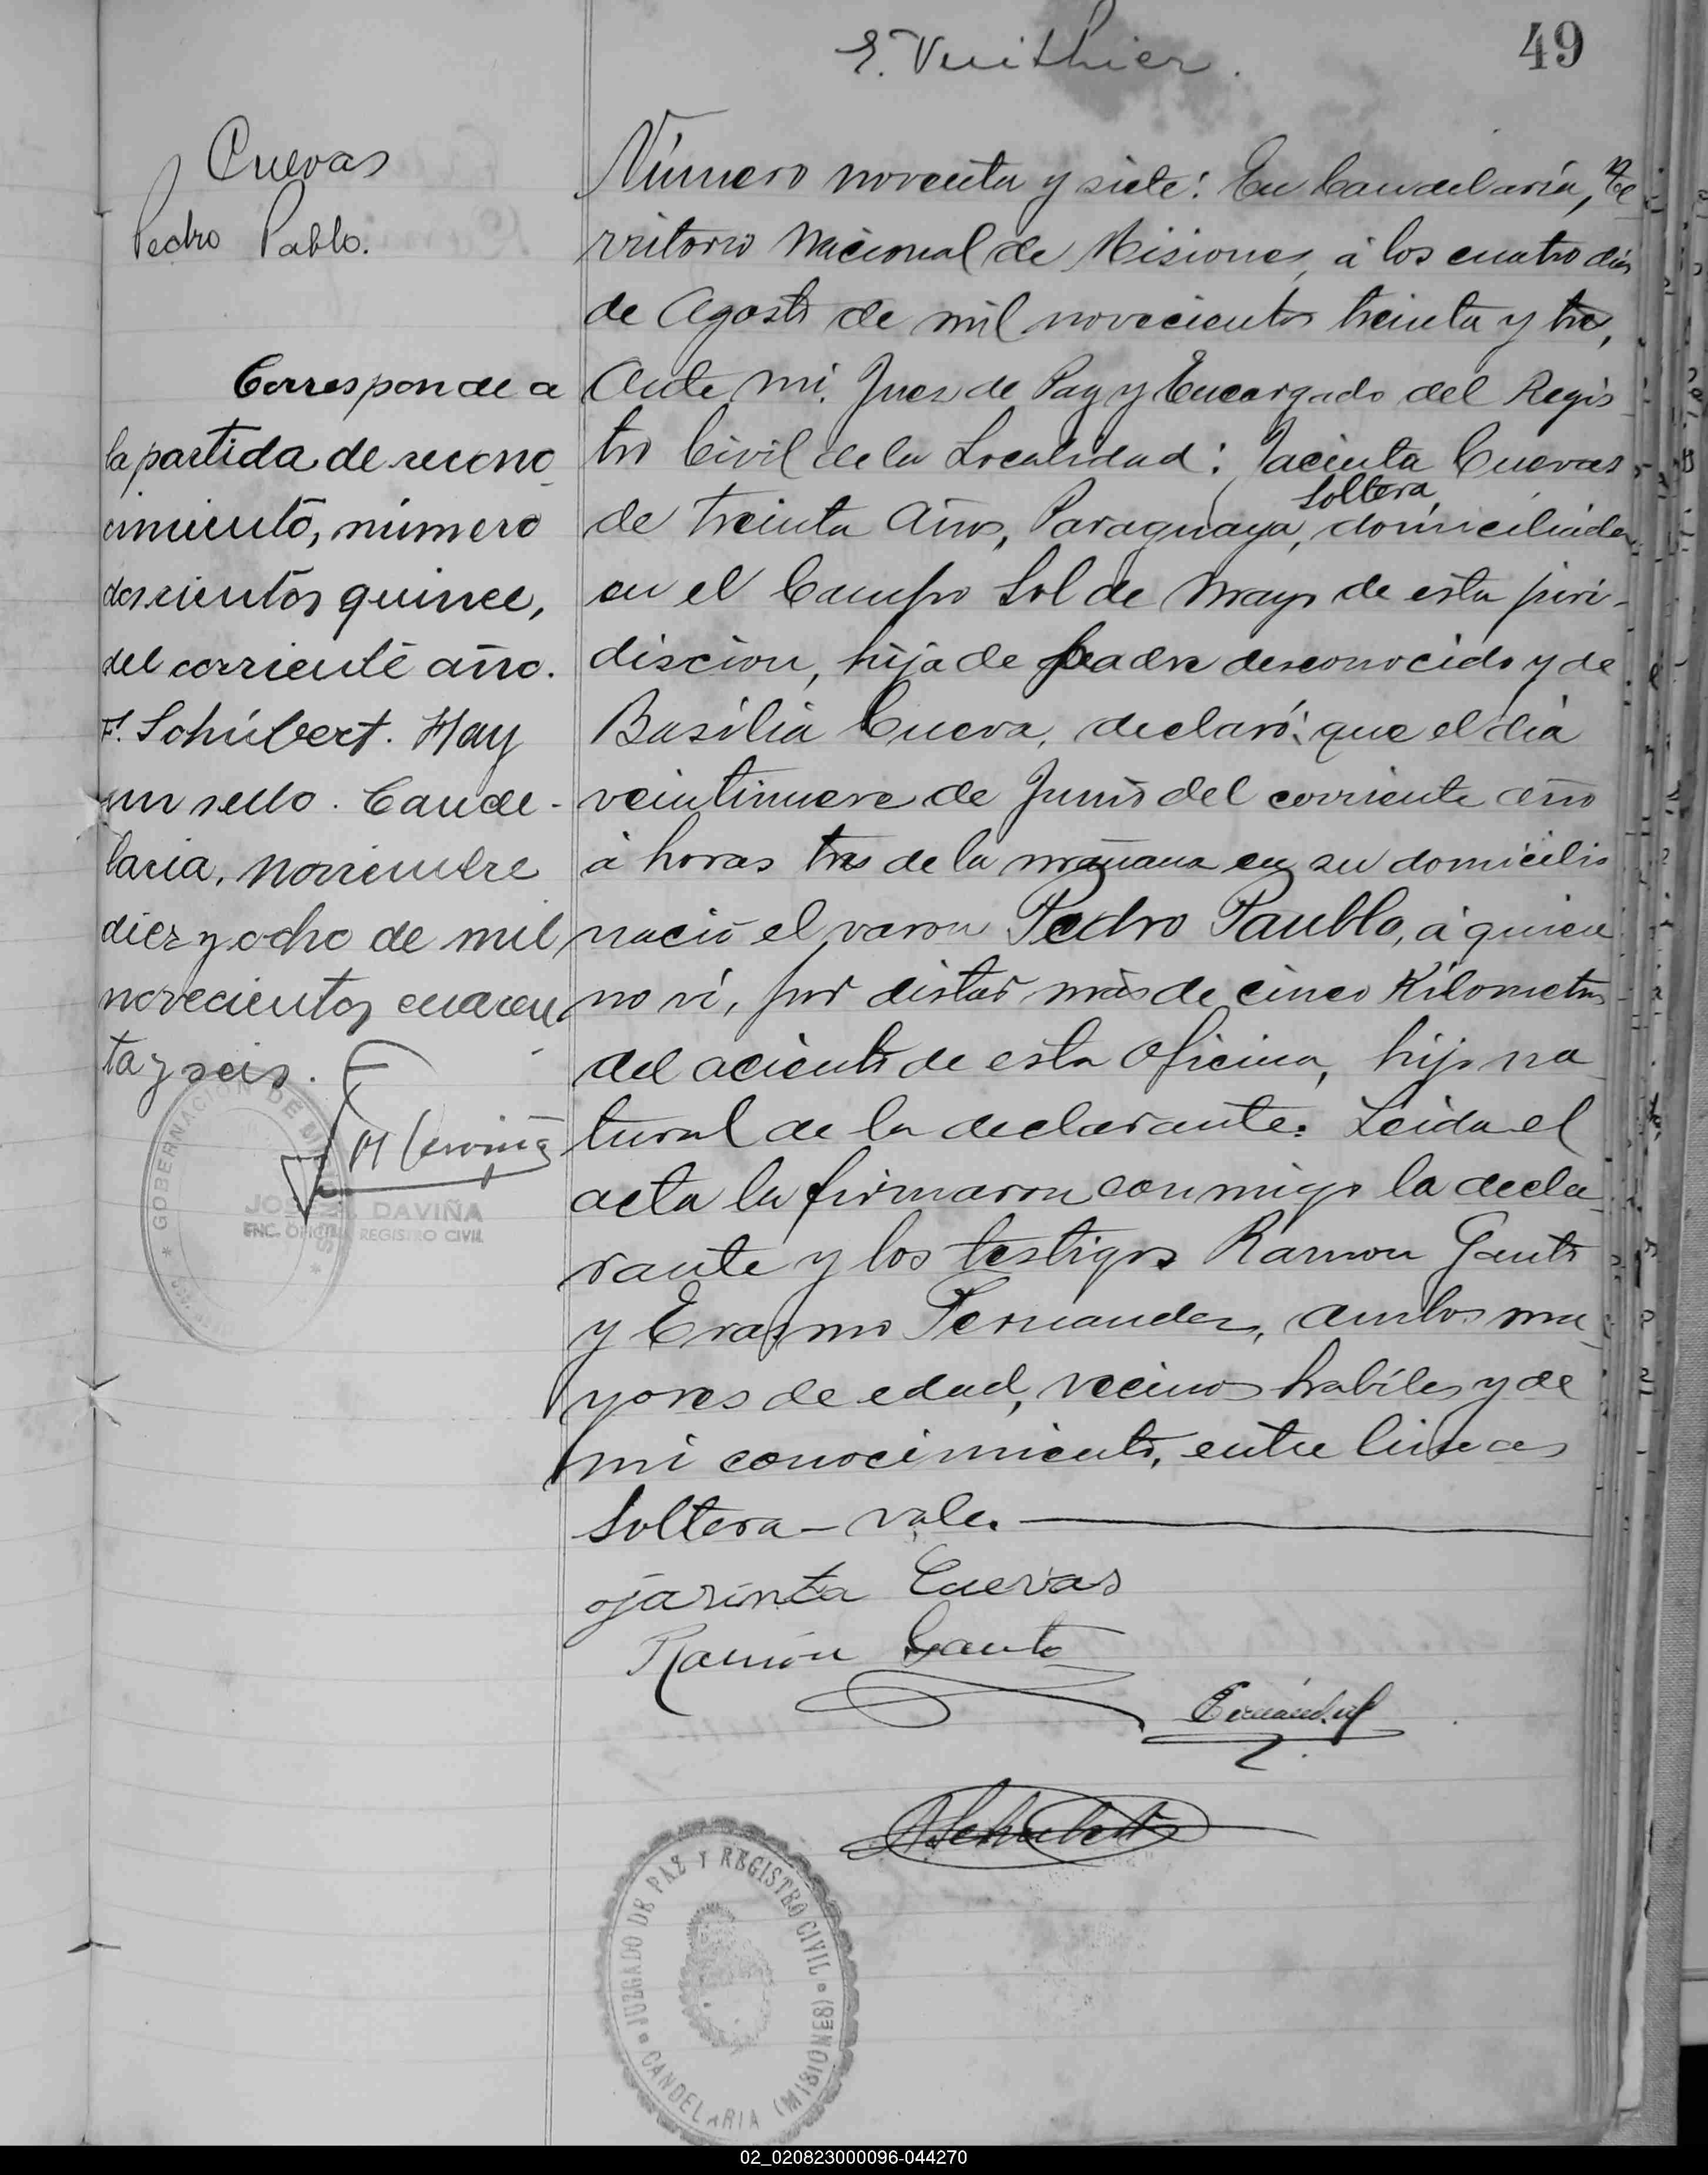 49
E. Vuithier.
Cuevas
Pedro Pablo.
Corresponde a
la partida de recono
cimiento, número
doscientos quince,
del corriente año.
F. Schúbert. Hay
un sello. Cande-
laria, noviembre
diez y ocho de mil
novecientos cuaren
ta y seis.
GOBERNACIÓN DE MISIONES
JOSE M. DAVIÑA
ENC. OFICINA REGISTRO CIVIL
Número noventa y siete: En Candelaria, Te
rritorio Nacional de Misiones, á los cuatro dias
de Agosto de mil novecientos treinta y tres,
Ante mi. Juez de Paz y Encargado del Regis
tro Civil de la Localidad: Jacinta Cuevas
soltera
de treinta Años, Paraguaya, domiciliada
en el Campo Sol de Mayo de esta juri-
discion, hija de padre desconocido y de
Basilia Cueva, declaró: que el dia
veintinueve de Junio del corriente año
á horas tres de la mañana en su domicilio
nació el varon Pedro Paublo, á quien
no ví, por distar más de cinco Kilometros
del aciento de esta Oficina, hijo na
tural de la declarante. Leida el
acta la firmaron conmigo la decla
rante y los testigos Ramon Gauto
y Erasmo Fernandez, ambos ma
yores de edad, vecinos habiles y de
mi conocimiento, entre lineas
Soltera - vale.
jasinta Cuevas
Ramón Gauto
Fernández
Schubert
JUZGADO DE PAZ Y REGISTRO CIVIL
CANDELARIA (MISIONES)
02_020823000096-044270